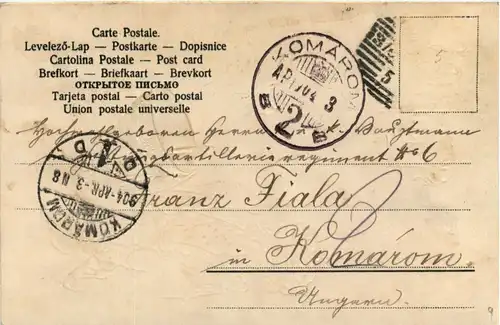 Carte Postale.
Levelező-Lap — Postkarte — Dopisnice
Cartolina Postale — Post card
Brefkort — Briefkaart — Brevkort
ОТКРЫТОЕ ПИСЬМО
Tarjeta postal — Carto postal
Union postale universelle
KOMÁROM
904 APR-3 N8
KOMÁROM
Hochwohlgeboren Herrn Hauptmann
Festungsartillerieregiment No 6
Franz Fiala
in Komárom.
Ungarn.